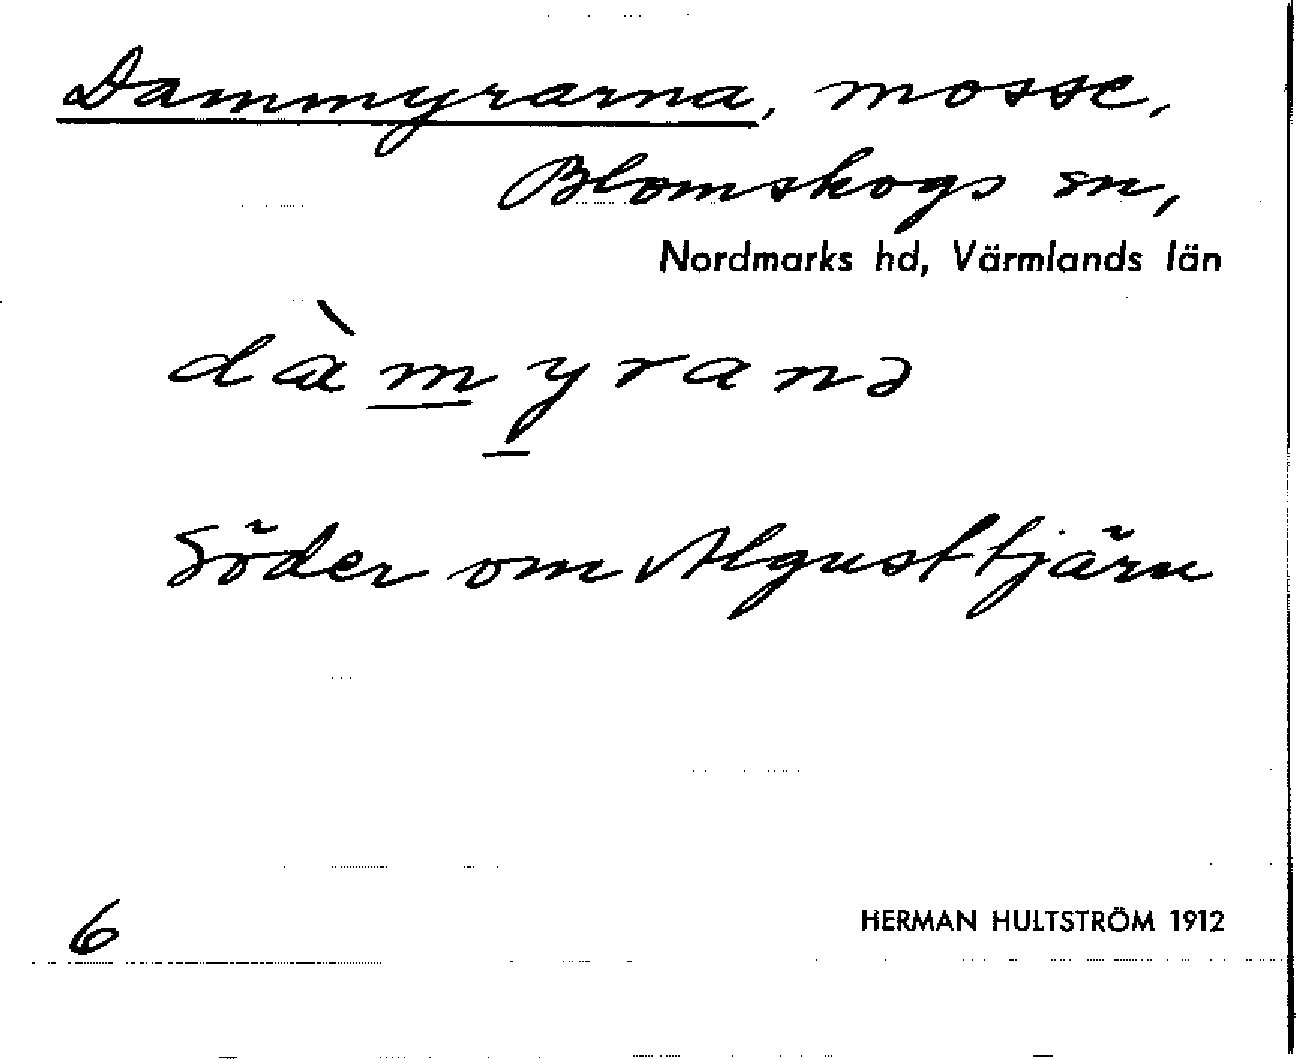 Dammyrarna, mosse,
Blomskogs sn,
Nordmarks hd, Värmlands län
dàmyranə
Söder om Algusttjärn
6
HERMAN HULTSTRÖM 1912